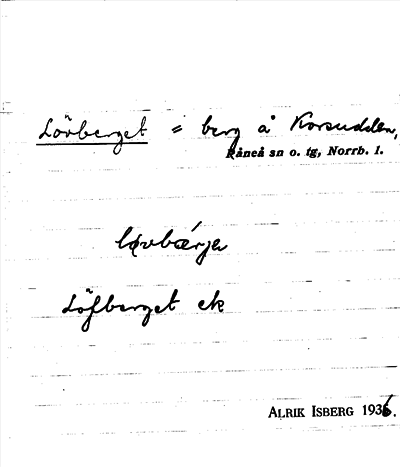 Lövberget = berg å Korsudden,
Råneå sn o. tg, Norrb. l.
Löfberget ek
ALRIK ISBERG 1936.